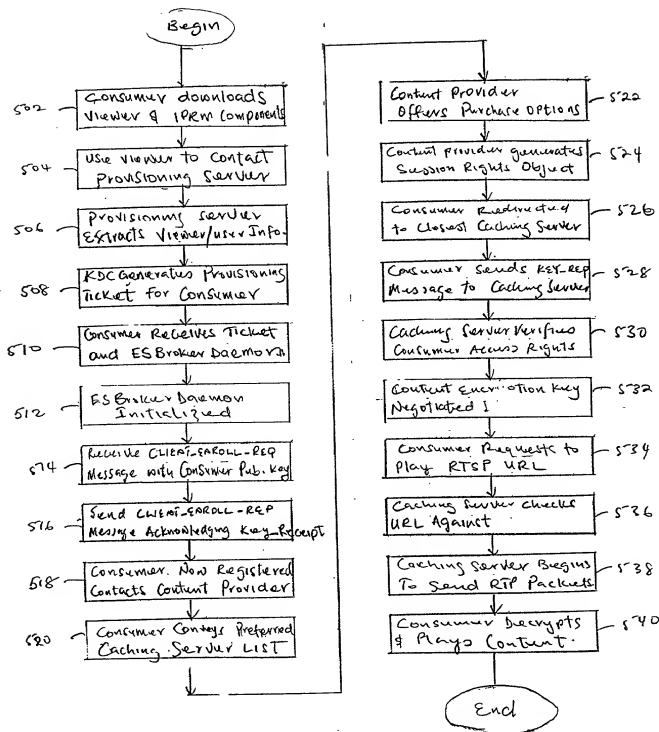 Begin
502
Consumer downloads
Viewer & IPRM Components
504
Use viewer to Contact
Provisioning Server
506
Provisioning Server
Extracts Viewer/user Info.
508
KDC Generates Provisioning
Ticket for Consumer
510
Consumer Receives Ticket
and ESBroker Daemon
512
ESBroker Daemon
Initialized
514
Receive CLIENT_ENROLL_REQ
Message with Consumer Pub. Key
516
Send CLIENT_ENROLL_REP
Message Acknowledging Key_Receipt
518
Consumer Now Registered
Contacts Content Provider
520
Consumer Conveys Preferred
Caching Server LIST
Content Provider
Offers Purchase Options
522
Content provider generates
Session Rights Object
524
Consumer Redirected
to Closest Caching Server
526
Consumer Sends KEY_REP
Message to Caching Server
528
Caching Server Verifies
Consumer Access Rights
530
Content Encription Key
Negotiated
532
Consumer Requests to
Play RTSP URL
534
Caching Server Checks
URL Against
536
Caching Server Begins
To Send RTP Packets
538
Consumer Decrypts
& Plays Content.
540
End